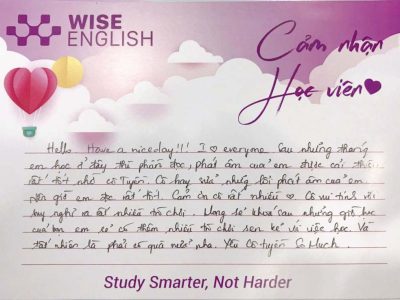 WISE
ENGLISH
Cảm nhận
Học viên
Hello. Have a niceday!!! I ♡ everyone. Sau những tháng
em học ở đây thì phần đọc, phát âm của em được cải thiện
rất tốt nhờ cô Tuyên. Cô hay sửa những lỗi phát âm của em.
Nên giờ em đọc rất tốt. Cảm ơn cô rất nhiều ♡. Cô vui tính với
hay nghĩ ra rất nhiều trò chơi. Mong sẽ sau những giờ học
của bọn em sẽ có thêm nhiều trò chơi xen kẽ và việc học. Và
tất nhiên là phải có quà nữa nha. Yêu cô Tuyên So Much.
Study Smarter, Not Harder